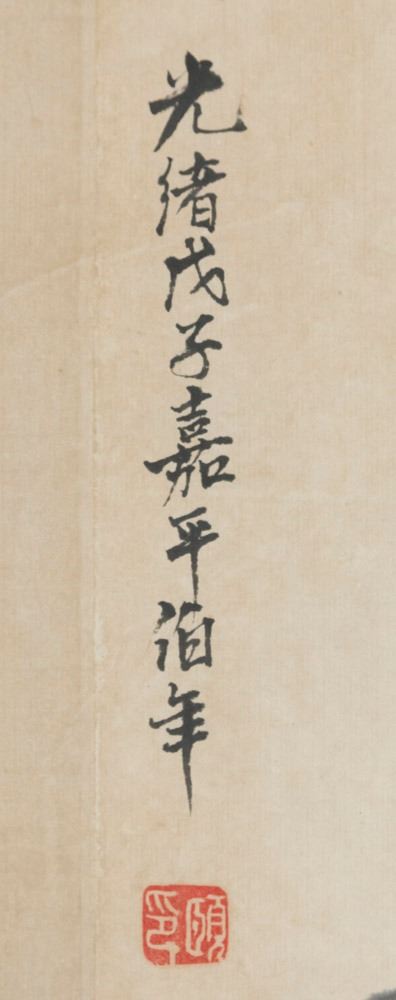 光緒戊子嘉平伯年
頤印